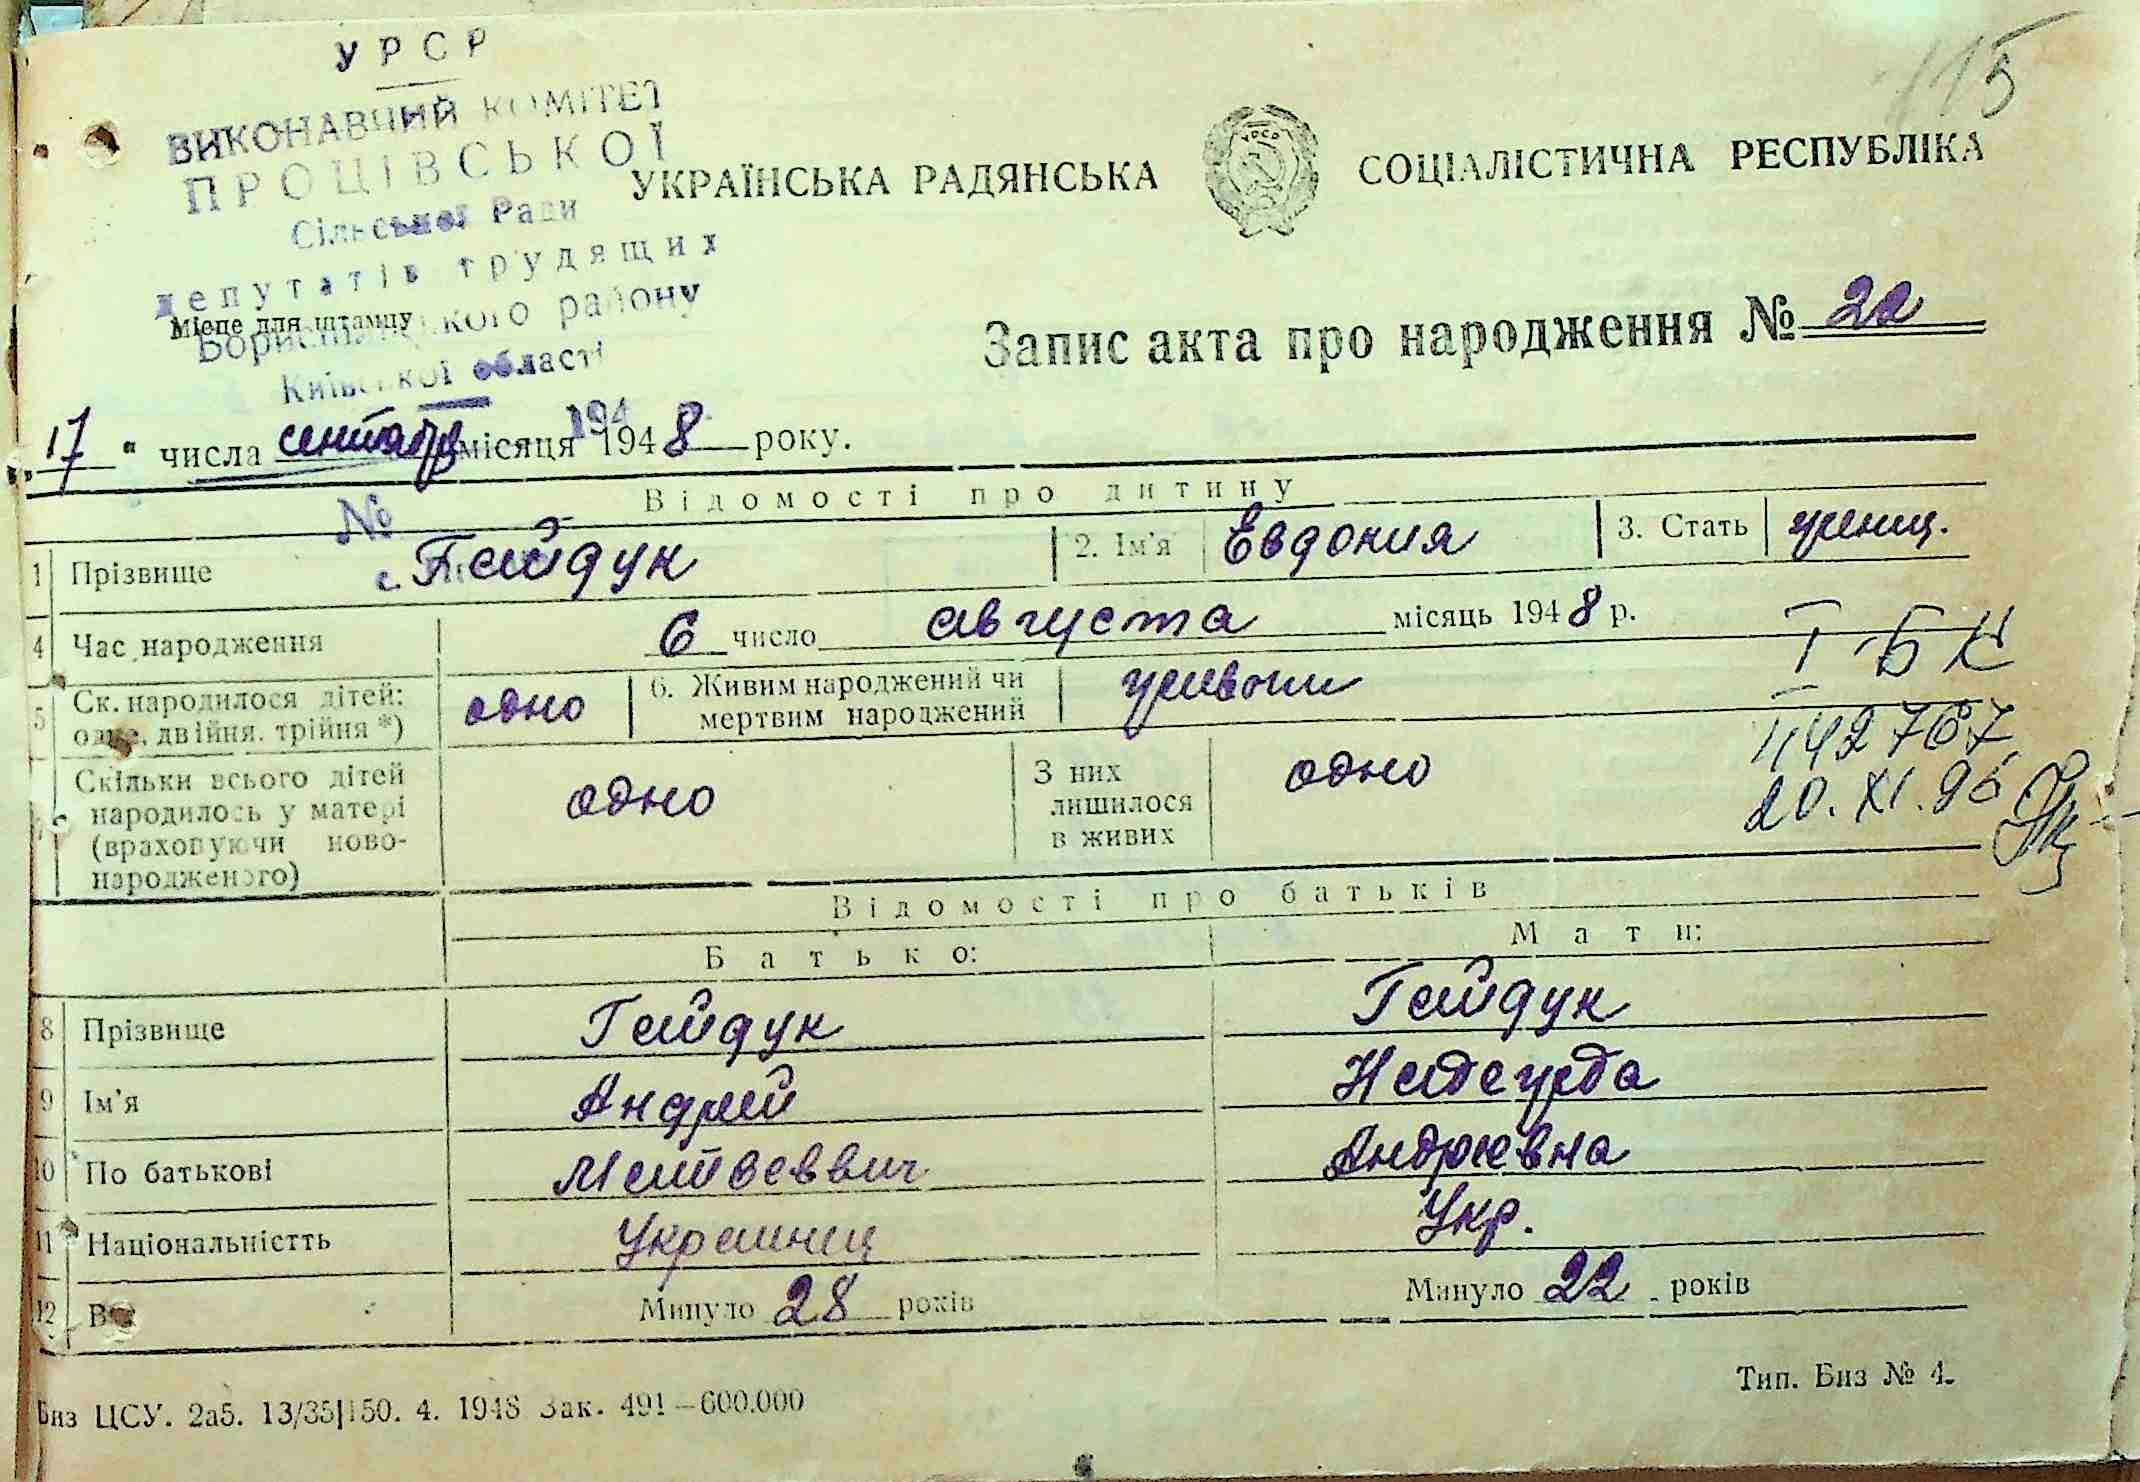 115
УРСР
ВИКОНАВЧИЙ КОМІТЕТ
ПРОЦІВСЬКОЇ
Сільської Ради
депутатів трудящих
Бориспільського району
Київської області
194
№
с.
УКРАЇНСЬКА РАДЯНСЬКА СОЦІАЛІСТИЧНА РЕСПУБЛІКА
УРСР
Місце для штампу
Запис акта про народження № 22
„17" числа сентября місяця 1948 року.
Відомості про дитину
1 Прізвище Гайдук 2. Ім'я Евдокия 3. Стать женщ.
4 Час народження 6 число августа місяць 1948 р.
5 Ск. народилося дітей: одне, двійня, трійня *) одно 6. Живим народжений чи мертвим народжений живым
7 Скільки всього дітей народилось у матері (враховуючи новонародженого) одно З них лишилося в живих одно
І-БК
442767
20.XI.96
Відомості про батьків
Батько: Мати:
8 Прізвище Гайдук Гайдук
9 Ім'я Андрей Надежда
10 По батькові Матвеевич Андреевна
11 Національністть Украинец Укр.
12 Вік Минуло 28 років Минуло 22 років
Биз ЦСУ. 2а5. 13/35|150. 4. 1948 Зак. 491—600.000
Тип. Биз № 4.